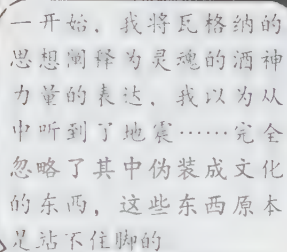 一开始，我将瓦格纳的
思想阐释为灵魂的酒神
力量的表达，我以为从
中听到了地震……完全
忽略了其中伪装成文化
的东西，这些东西原本
是站不住脚的